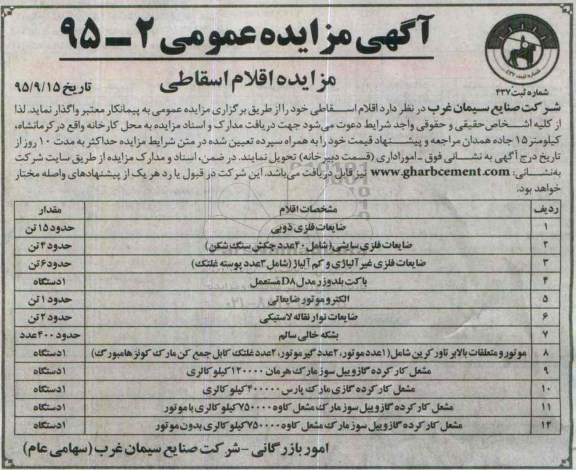 آگهی مزایده عمومی ۲ـ۹۵
مزایده اقلام اسقاطی
تاریخ ۹۵/۹/۱۵
شماره ثبت ۴۳۷
شرکت صنایع سیمان غرب در نظر دارد اقلام اسقاطی خود را از طریق برگزاری مزایده عمومی به پیمانکار معتبر واگذار نماید. لذا
از کلیه اشخاص حقیقی و حقوقی واجد شرایط دعوت می‌شود جهت دریافت مدارک و اسناد مزایده به محل کارخانه واقع در کرمانشاه،
کیلومتر ۱۵ جاده همدان مراجعه و پیشنهاد قیمت خود را به همراه سپرده تعیین شده در متن شرایط مزایده حداکثر به مدت ۱۰ روز از
تاریخ درج آگهی به نشانی فوق ـ امور اداری (قسمت دبیرخانه) تحویل نمایند. در ضمن، اسناد و مدارک مزایده از طریق سایت شرکت
به نشانی: www.gharbcement.com نیز قابل دریافت می‌باشد. این شرکت در قبول یا رد هر یک از پیشنهادهای واصله مختار
خواهد بود.
ردیف مشخصات اقلام مقدار
۱ ضایعات فلزی ذوبی حدود ۱۵ تن
۲ ضایعات فلزی سایشی (شامل ۲۰ عدد چکش سنگ شکن) حدود ۴ تن
۳ ضایعات فلزی غیر آلیاژی و کم آلیاژ (شامل ۳ عدد پوسته غلتک) حدود ۶ تن
۴ باکت بلدوزر مدل D۸ مستعمل ۱ دستگاه
۵ الکترو موتور ضایعاتی حدود ۱ تن
۶ ضایعات نوار نقاله لاستیکی حدود ۲ تن
۷ بشکه خالی سالم حدود ۴۰۰ عدد
۸ موتور و متعلقات بالابر تاور کرین شامل (۱ عدد موتور، ۲ عدد گیر موتور، ۲ عدد غلتک کابل جمع کن مارک کونز هامبورگ) ۱ دستگاه
۹ مشعل کار کرده گازوییل سوز مارک هرمان ۱۲۰۰۰۰ کیلو کالری ۱ دستگاه
۱۰ مشعل کار کرده گازی مارک پارس ۴۰۰۰۰۰ کیلو کالری ۱ دستگاه
۱۱ مشعل کار کرده گازوییل سوز مارک مشعل کاوه ۷۵۰۰۰۰ کیلو کالری با موتور ۱ دستگاه
۱۲ مشعل کار کرده گازوییل سوز مارک مشعل کاوه ۷۵۰۰۰۰ کیلو کالری بدون موتور ۱ دستگاه
امور بازرگانی - شرکت صنایع سیمان غرب (سهامی عام)